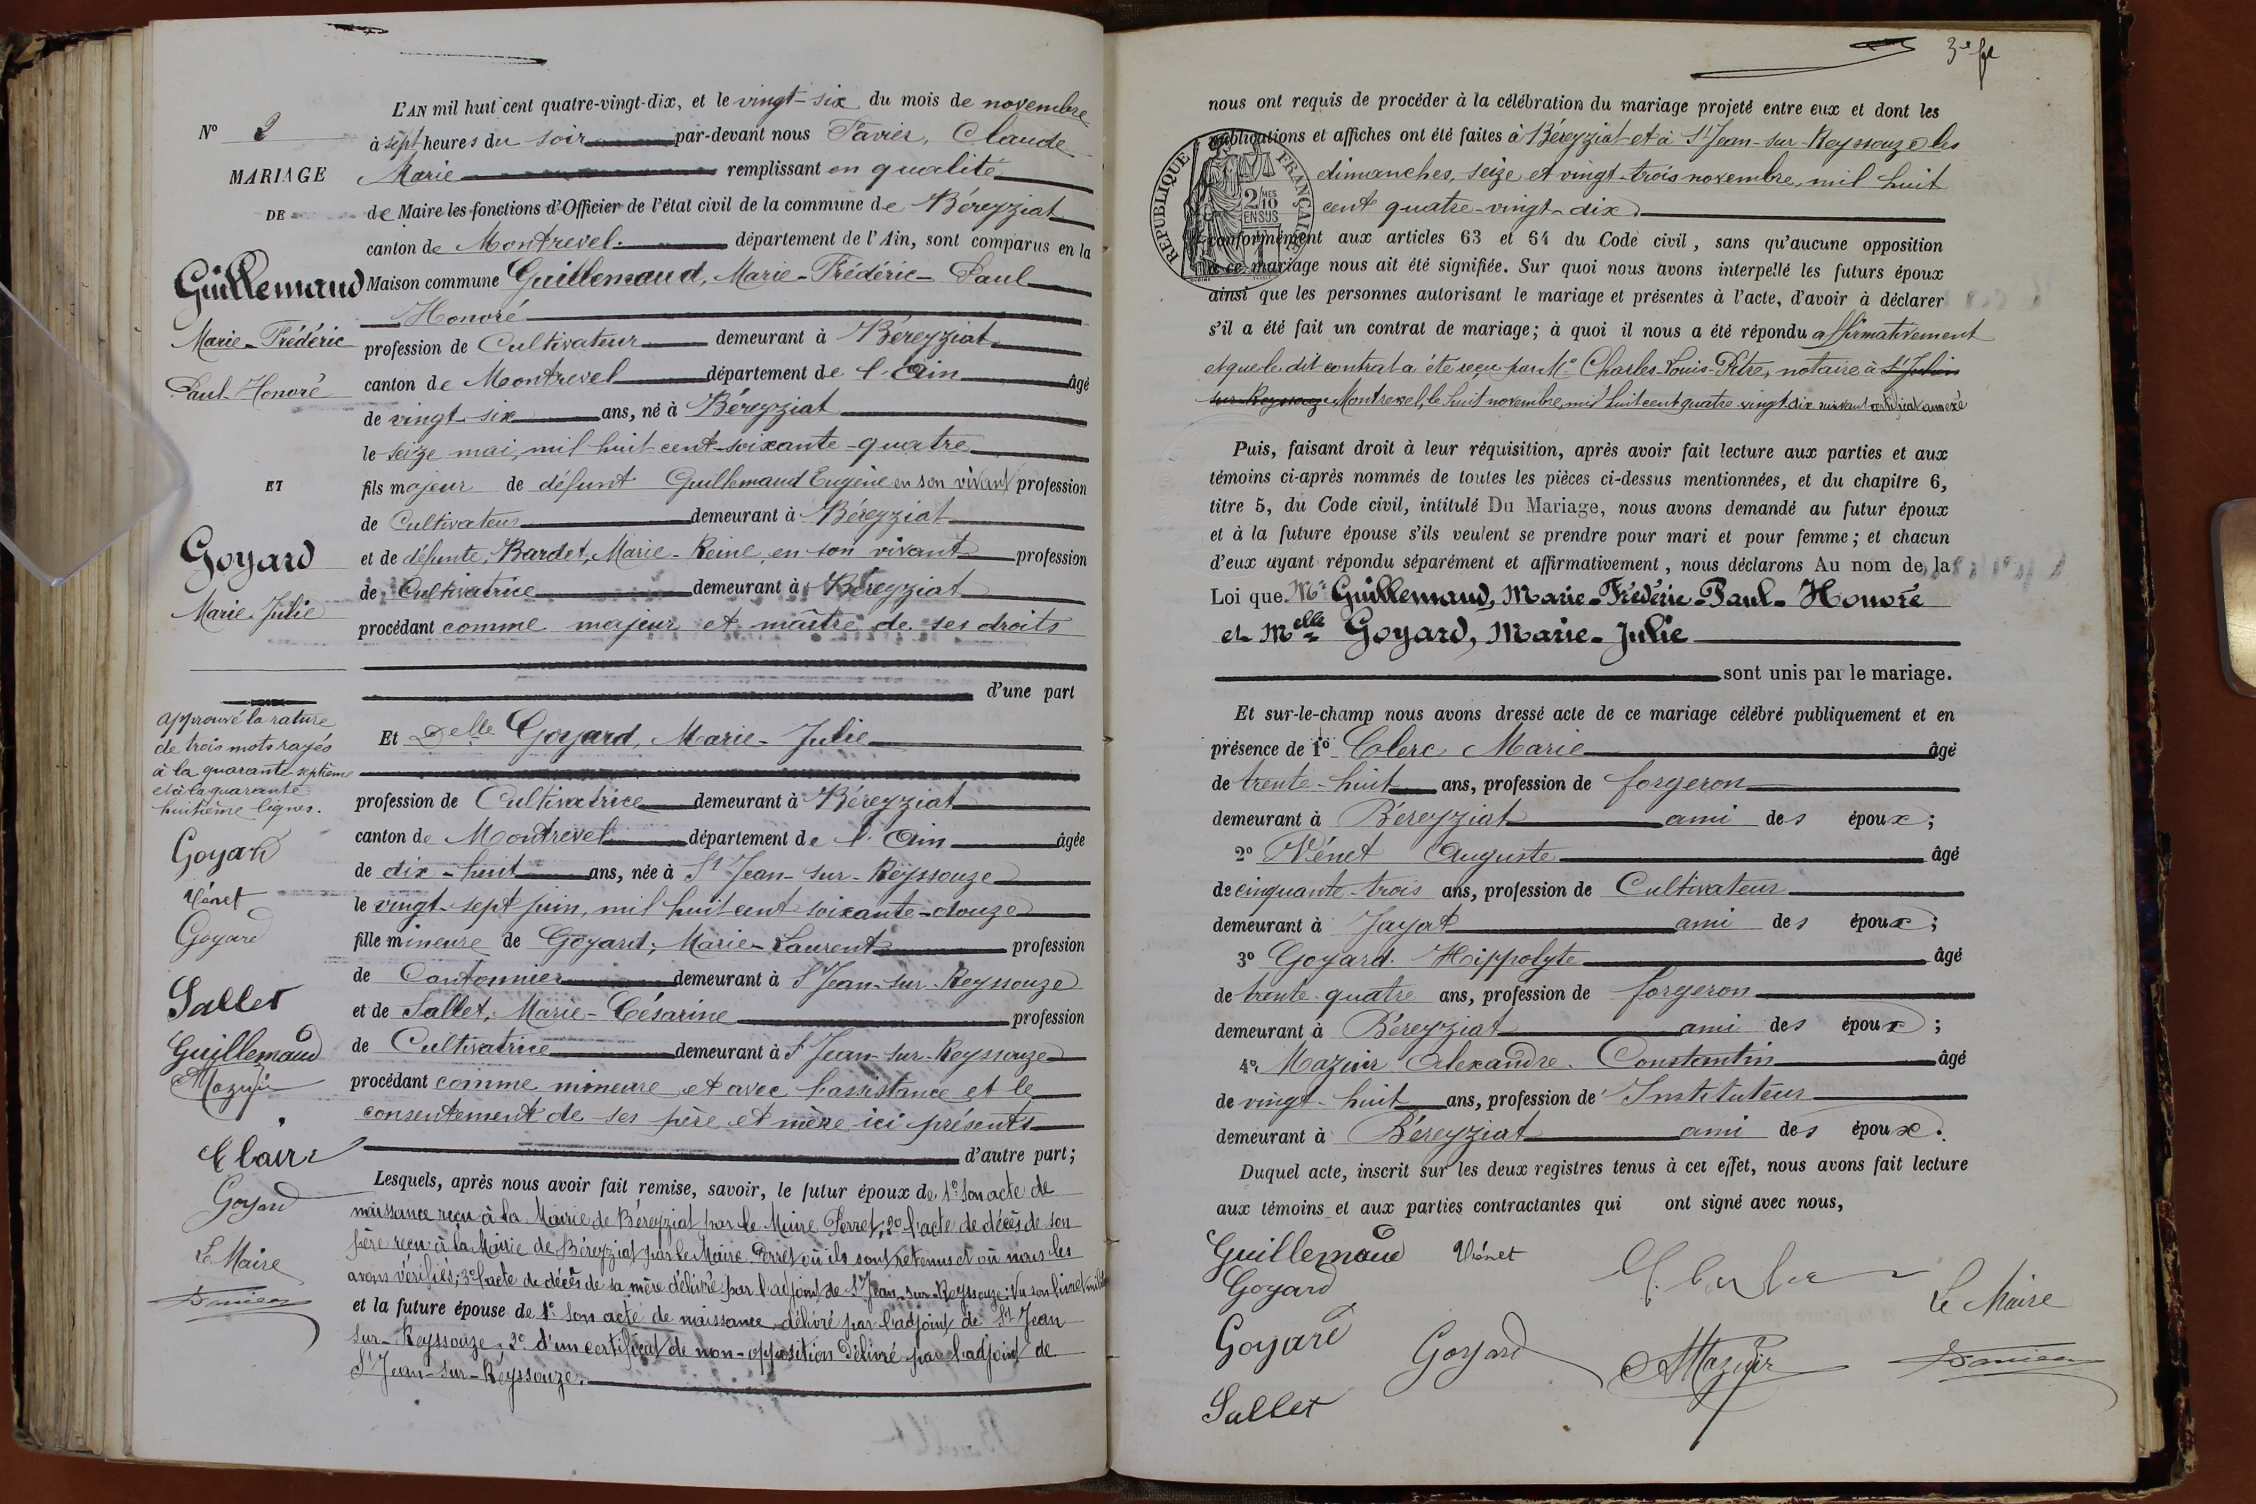 N° 2
MARIAGE
DE
Guillemaud
Marie-Frédéric
Paul-Honoré
ET
Goyard
Marie-Julie
approuvé la rature
de trois mots rayés
à la quarante-septième
et à la quarante
huitième lignes.
Goyard
Vénet
Goyard
Sallet
Guillemaud
AMazuir
Goyard
Le Maire
L'AN mil huit cent quatre-vingt-dix, et le vingt-six du mois de novembre
à sept heures du soir par-devant nous Favier, Claude
Marie remplissant en qualité
de Maire les fonctions d'Officier de l'état civil de la commune de Béreyziat
canton de Montrevel. département de l'Ain, sont comparus en la
Maison commune Guillemaud, Marie-Frédéric-Paul
Honoré
profession de Cultivateur demeurant à Béreyziat
canton de Montrevel département de l'Ain âgé
de vingt-six ans, né à Béreyziat
le seize mai, mil huit cent-soixante-quatre
fils majeur de défunt Guillemaud Eugène en son vivant profession
de Cultivateur demeurant à Béreyziat
et de défunte, Bardet, Marie-Reine, en son vivant profession
de Cultivatrice demeurant à Béreyziat
procédant comme majeur et maître de ses droits
d'une part
Et Delle Goyard, Marie-Julie
profession de Cultivatrice demeurant à Béreyziat
canton de Montrevel département de l'Ain âgée
de dix-huit ans, née à St Jean-sur-Reyssouze
le vingt-sept juin, mil huit cent soixante-douze
fille mineure de Goyard, Marie-Laurent profession
de Cantonnier demeurant à St Jean-sur-Reyssouze
et de Sallet, Marie-Césarine profession
de Cultivatrice demeurant à St Jean-sur-Reyssouze
procédant comme mineure et avec l'assistance et le
consentement de ses père et mère ici présents
d'autre part;
Lesquels, après nous avoir fait remise, savoir, le futur époux de 1° Son acte de
naissance reçu à la Mairie de Béreyziat par le Maire Perret; 2° l'acte de décès de son
père reçu à la Mairie de Béreyziat par le Maire Perret où ils sont retenus et où nous les
avons vérifiés; 3° l'acte de décès de sa mère délivré par l'adjoint de St Jean-sur-Reyssouze; Vu son livret
et la future épouse de 1° Son acte de naissance délivré par l'adjoint de St Jean
sur-Reyssouze; 2° d'un certificat de non-opposition délivré par l'adjoint de
St Jean-sur-Reyssouze.
nous ont requis de procéder à la célébration du mariage projeté entre eux et dont les
publications et affiches ont été faites à Béreyziat et à St Jean-sur-Reyssouze les
dimanches, seize et vingt-trois novembre, mil huit
cent quatre-vingt-dix
REPUBLIQUE FRANÇAISE
2/10
EN SUS
conformément aux articles 63 et 64 du Code civil, sans qu'aucune opposition
à ce mariage nous ait été signifiée. Sur quoi nous avons interpellé les futurs époux
ainsi que les personnes autorisant le mariage et présentes à l'acte, d'avoir à déclarer
s'il a été fait un contrat de mariage; à quoi il nous a été répondu affirmativement
et que le dit contrat a été reçu par Me Charles-Louis-Pêtre, notaire à St Julien
sur Reyssouze Montrevel, le huit novembre, mil huit cent quatre-vingt dix suivant certificat annexé
Puis, faisant droit à leur réquisition, après avoir fait lecture aux parties et aux
témoins ci-après nommés de toutes les pièces ci-dessus mentionnées, et du chapitre 6,
titre 5, du Code civil, intitulé Du Mariage, nous avons demandé au futur époux
et à la future épouse s'ils veulent se prendre pour mari et pour femme; et chacun
d'eux ayant répondu séparément et affirmativement, nous déclarons Au nom de la
Loi que Mr Guillemaud, Marie-Frédéric-Paul-Honoré
et Melle Goyard, Marie-Julie
sont unis par le mariage.
Et sur-le-champ nous avons dressé acte de ce mariage célébré publiquement et en
présence de 1° Clerc Marie âgé
de trente-huit ans, profession de forgeron
demeurant à Béreyziat ami des époux;
2° Vénet Auguste âgé
de cinquante-trois ans, profession de Cultivateur
demeurant à Jayat ami des époux;
3° Goyard Hippolyte âgé
de trente-quatre ans, profession de forgeron
demeurant à Béreyziat ami des époux;
4° Mazuir Alexandre Constantin âgé
de vingt-huit ans, profession de Instituteur
demeurant à Béreyziat ami des époux.
Duquel acte, inscrit sur les deux registres tenus à cet effet, nous avons fait lecture
aux témoins et aux parties contractantes qui ont signé avec nous,
Guillemaud Vénet
Goyard
Le Maire
Goyard Goyard AMazuir
Sallet